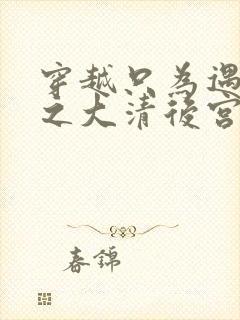 穿越只為遇
之大清後宮
春錦